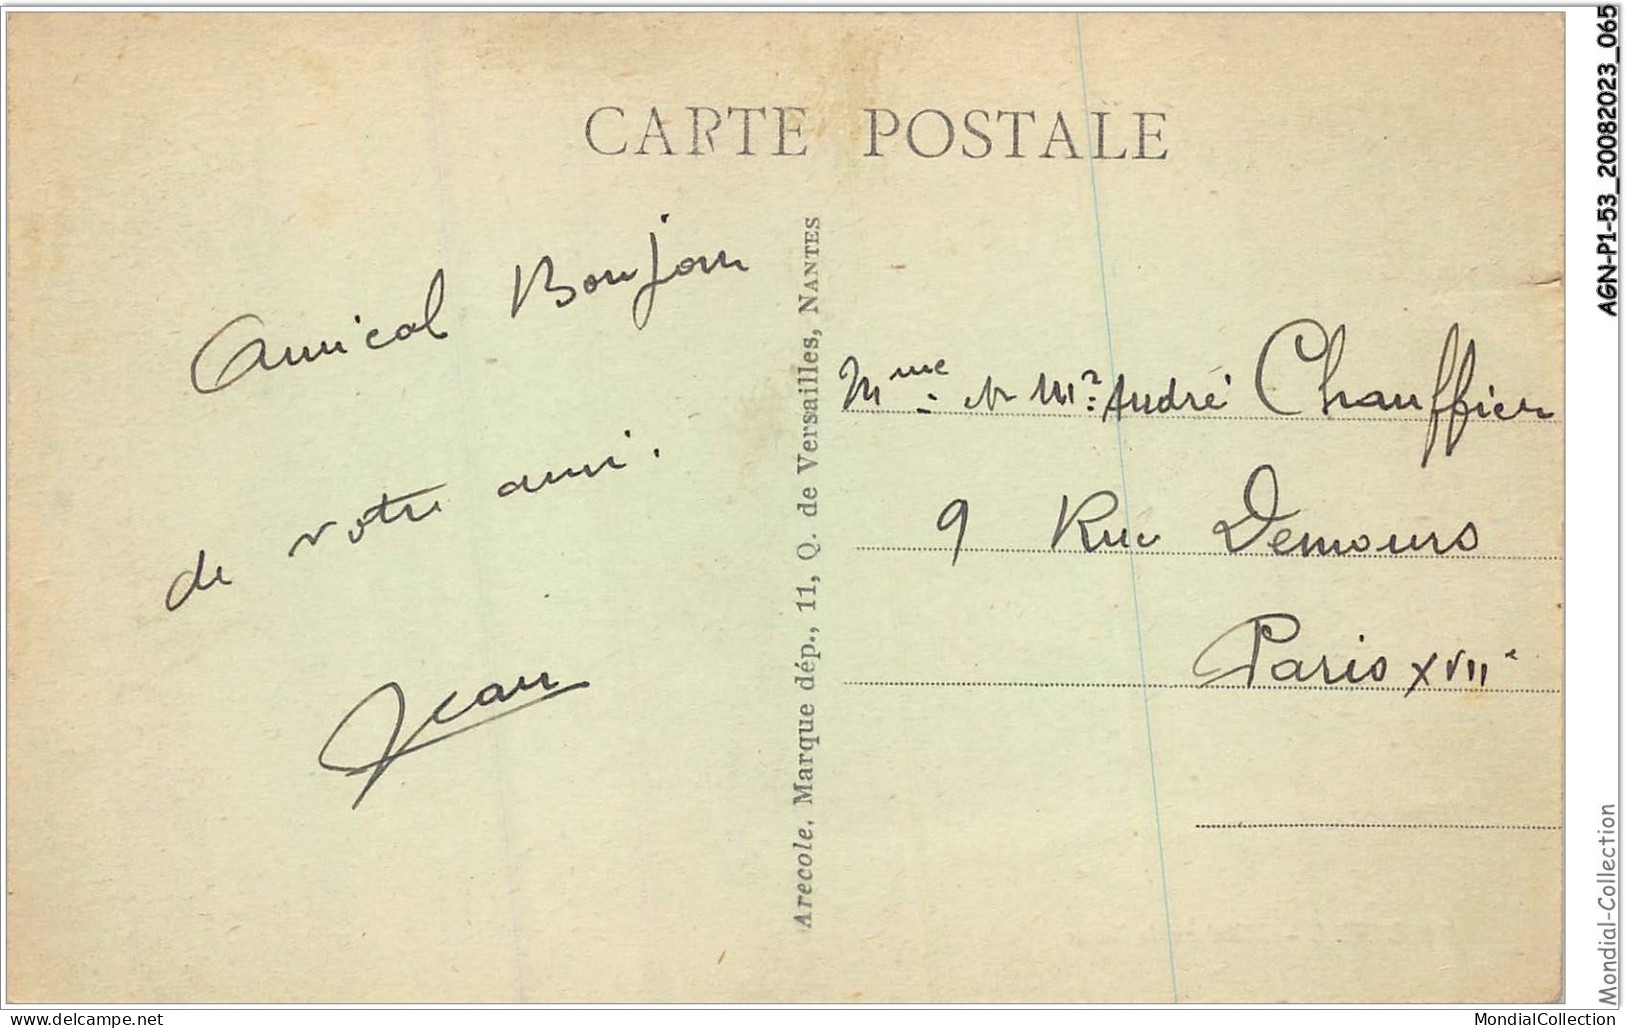 CARTE POSTALE
Amical Bonjour
de votre ami.
Jean
Arecole, Marque dép., 11, Q. de Versailles, NANTES
Mme et Mr André Chauffier
9 Rue Demours
Paris XVIIe
AGN-P1-53_20082023_065
Mondial-Collection
www.delcampe.net
MondialCollection